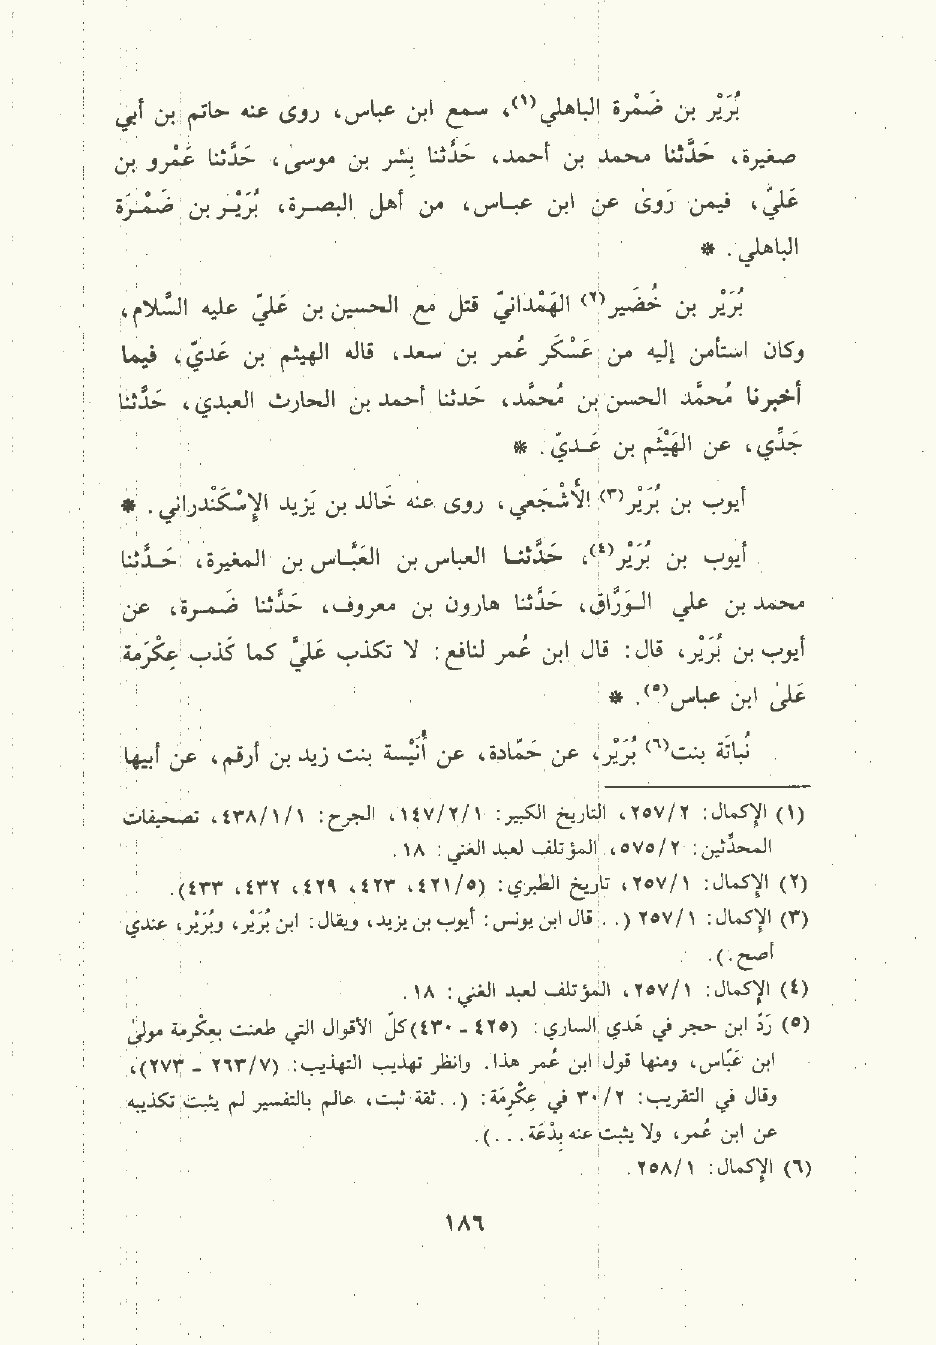 بُرَيْر بن ضَمْرة الباهلي(١)، سمع ابن عباس، روى عنه حاتم بن أبي
صغيرة، حَدَّثنا محمد بن أحمد، حَدَّثنا بِشر بن موسىٰ، حَدَّثنا عَمْرو بن
عَليّ، فيمن رَوىٰ عن ابن عبـاس، من أهل البصـرة، بُرَيْـر بن ضَمْـرَة
الباهلي. *
بُرَيْر بن خُضَير(٢) الهَمْدانيّ قتل مع الحسين بن عَليّ عليه السَّلام،
وكان استأمن إليه من عَسْكَر عُمر بن سعد، قاله الهيثم بن عَديّ، فيما
أخبرنا مُحمَّد الحسن بن مُحمَّد، حَدثنا أحمد بن الحارث العبدي، حَدَّثنا
جَدِّي، عن الهَيْثَم بن عَـديّ. *
أيوب بن بُرَيْر(٣) الأَشْجَعي، روى عنه خَالد بن يَزيد الإِسْكَنْدراني. *
أيوب بن بُرَيْر(٤)، حَدَّثنـا العباس بن العَبَّـاس بن المغيرة، حَـدَّثنا
محمد بن علي الـوَرَّاق، حَدَّثنا هارون بن معروف، حَدَّثنا ضَـمـرة، عن
أيوب بن بُرَيْر، قال: قال ابن عُمر لنافع: لا تكذب عَليَّ كما كَذب عِكْرَمة
عَلىٰ ابن عباس(٥). *
نُباتَة بنت(٦) بُرَيْر، عن حَمّادة، عن أُنَيْسة بنت زيد بن أرقم، عن أبيها
(١) الإِكمال: ٢/٢٥٧، التاريخ الكبير: ١/٢/١٤٧، الجرح: ١/١/٤٣٨، تصحيفات
المحدِّثين: ٢/٥٧٥، المؤتلف لعبد الغني: ١٨.
(٢) الإِكمال: ١/٢٥٧، تاريخ الطبري: (٥/٤٢١، ٤٢٣، ٤٢٩، ٤٣٢، ٤٣٣).
(٣) الإِكمال: ١/٢٥٧ (.. قال ابن يونس: أيوب بن يزيد، ويقال: ابن بُرَيْر، وبُرَيْر، عندي
أصح.).
(٤) الإِكمال: ١/٢٥٧، المؤتلف لعبد الغني: ١٨.
(٥) رَدّ ابن حجر في هَدي الساري: (٤٢٥ - ٤٣٠) كلّ الأقوال التي طعنت بعِكْرمة مولىٰ
ابن عَبّاس، ومنها قول ابن عُمر هذا. وانظر تهذيب التهذيب: (٧/٢٦٣ - ٢٧٣)،
وقال في التقريب: ٢/٣٠ في عِكْرِمَة: (.. ثقة ثبت، عالم بالتفسير لم يثبت تكذيبه
عن ابن عُمر، ولا يثبت عنه بِدْعَة...).
(٦) الإِكمال: ١/٢٥٨.
١٨٦